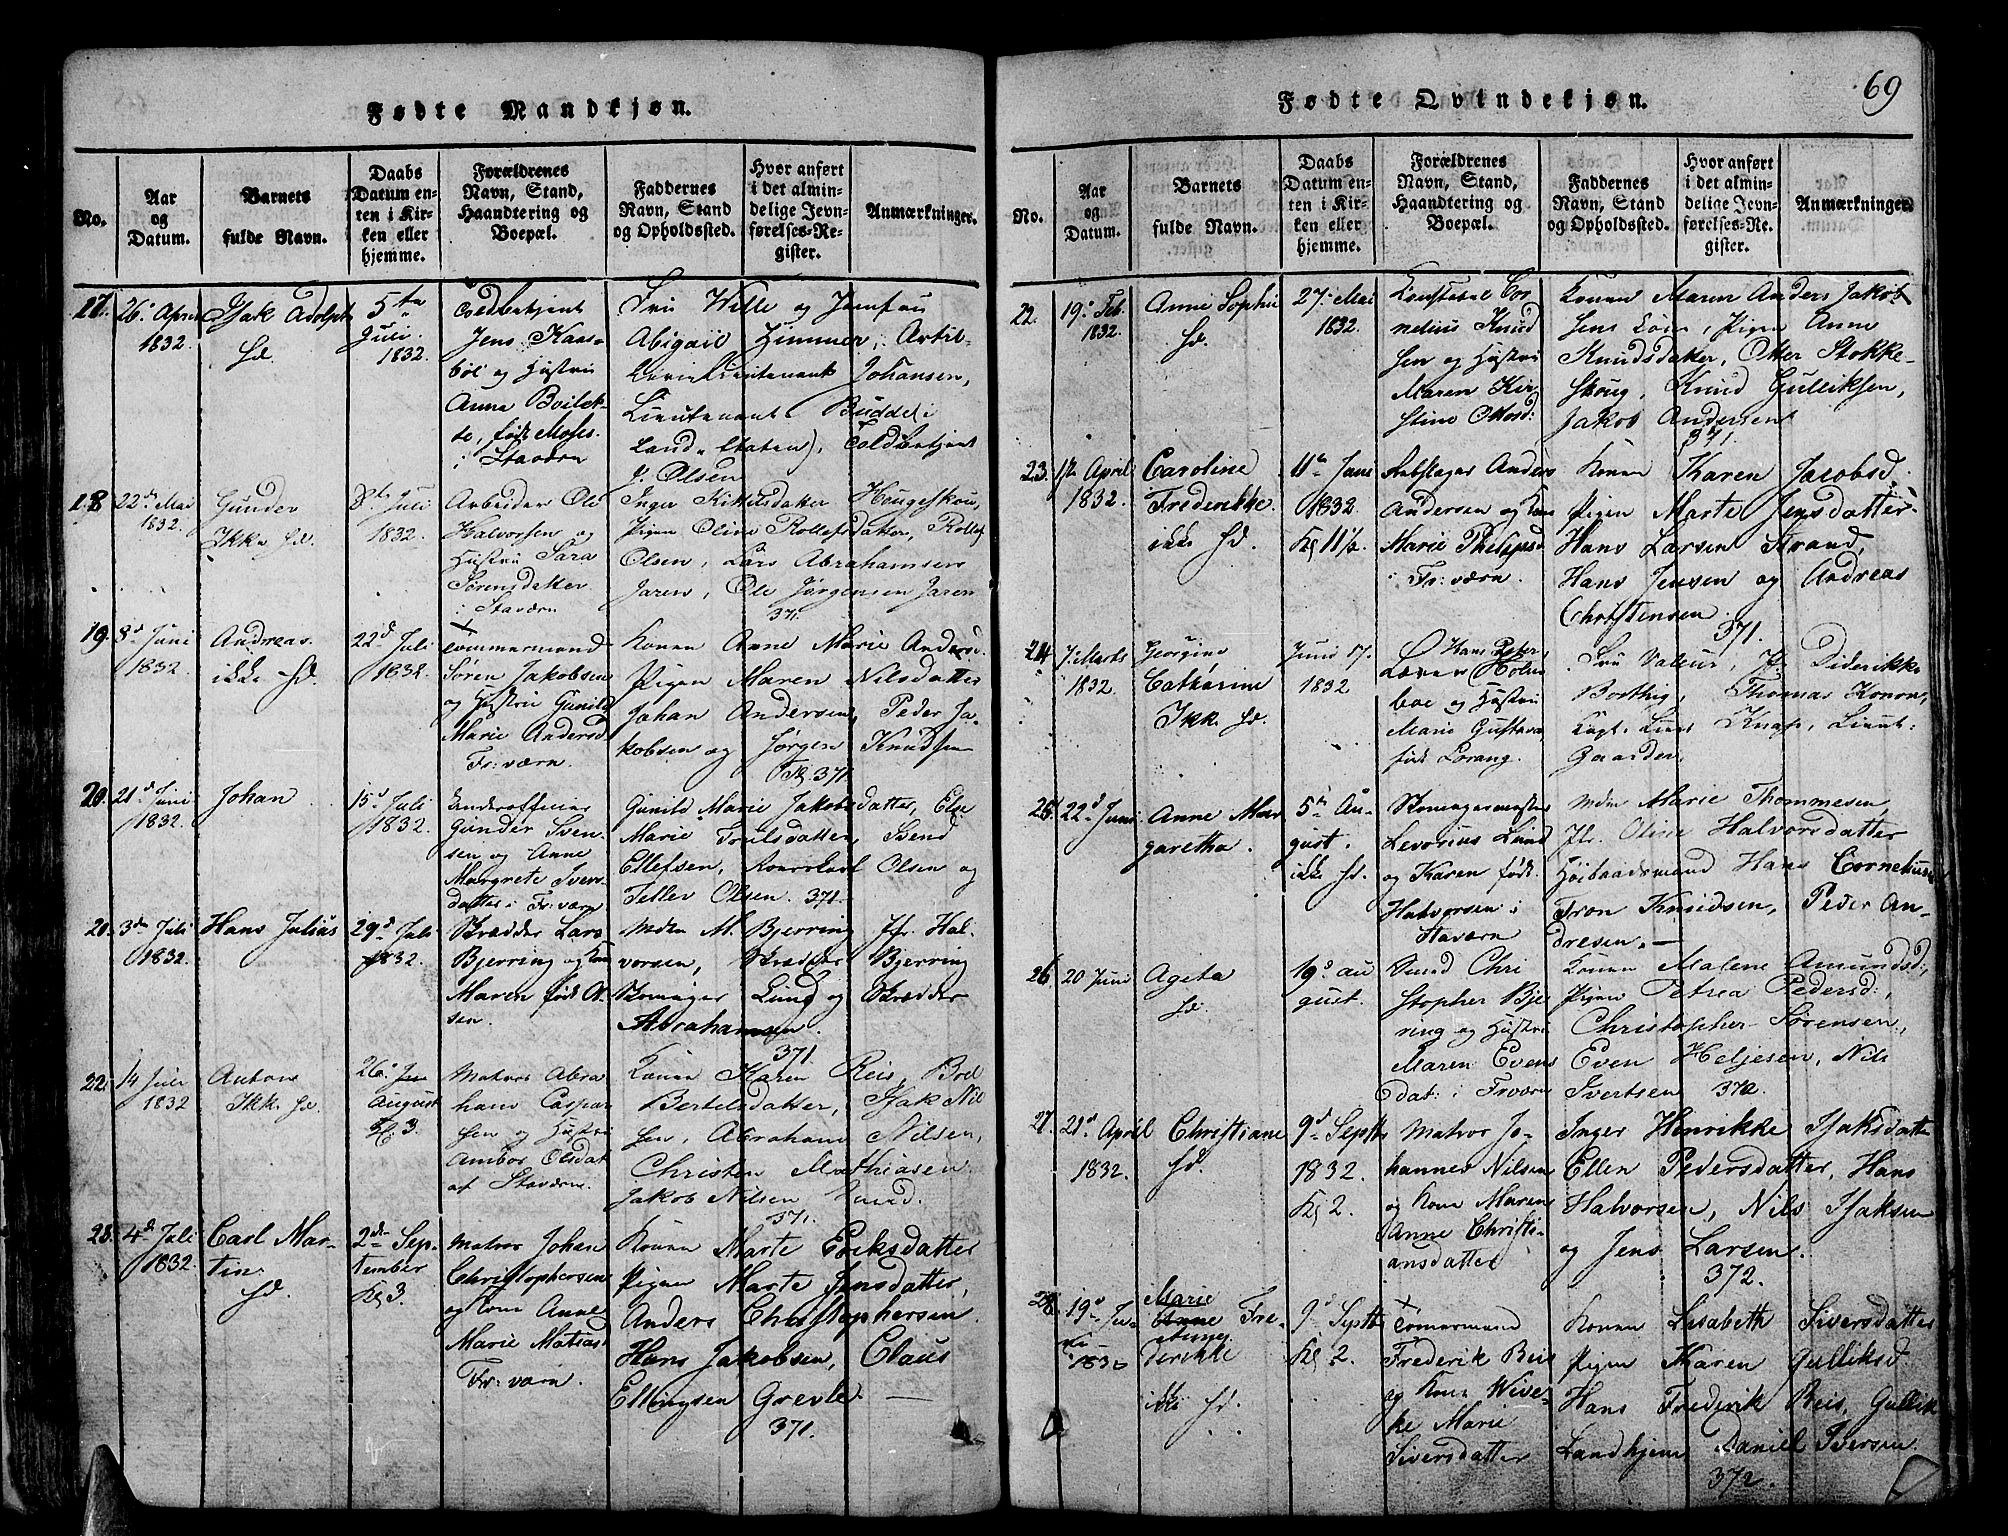 69
Fødte Mandkjøn.
No.
Aar og Datum.
Barnets fulde Navn.
Daabs Datum enten i Kirken eller hjemme.
Forældrenes Navn, Stand, Haandtering og Boepæl.
Faddernes Navn, Stand og Opholdssted.
Hvor anført i det almindelige Jevnførelses-Register.
Anmærkninger.
17.
26. April
1832.
Isak Adolph
hd.
5te
Juli
1832.
Toldbetjent
Jens Kaas-
böl og Hustru
Anna
født Moses.
i Stavern
Fru Wille og Jomfru
Abigail Zimmer, Artil-
Lieutenant Johansen,
Lieutenant Budde i
Land-Etaten, Toldbetjent
J. Olsen
18
22de Mai
1832.
Gunder
Ikke hd.
8de Juli
1832.
Arbeider Ole
Halvorsen og
Hustru Sara
Sørensdatter
i Stavern
Inger Kittilsdatter
Pigen Oline Rollefsdatter, Rollef
Olsen, Lars Abrahamsen
Jaren, Ole Jørgensen Jaren
371.
19.
8d Juni
1832.
Andreas.
ikke hd.
22d Juli
1832.
Tømmermand
Søren Jakobsen
og Hustru Gunild
Marie Andersd
Fr: værn.
Konen Anne Marie Andersd.
Pigen Maren Nilsdatter
Johan Andersen, Peder Ja-
kobsen og Jørgen Knudsen
371.
20.
21d Juni
1832.
Johan
15d Juli
1832.
Underofficier
Gunder Sven-
sen og Anne
Margrete Sven-
datter i Fr: værn
Gunild Marie Jakobsdatter, Else
Marie Troilsdatter, Svend
Ellefsen, Olsen og
Tellev Olsen. 371.
21.
3de Juli
1832.
Hans Julius
29d Juli
1832.
Skrædder Lars
Bjerring og Kone
Maren født Ol
sen.
Mdm M. Bjerring Jfr. Hal-
vorsen, Skrædder Bjerring
Lund og Skrædder
Abrahamsen.
371.
22.
14 Juli
1832
Anton
Ikk. hd.
26. Jun
August
Kl. 3.
Matros Abra
ham Caspar
sen og Hustru
Ambor Olsdat
af Stavern.
Konen Karen Reis, Boel
Bertelsdatter, Isak Nil
sen, Abraham Nilsen,
Christen Mathiasen
Jakob Nilsen Smed.
371.
23.
4d Juli
1832.
Carl Mar-
tin.
hd.
2de Sep-
tember
Kl 3.
Matros Johan
Christophersen
og Kone Anne
Marie Matias
Fr: værn.
Konen Marte Eriksdatter
Pigen Marte Jensdatter,
Anders Christophersen
Hans Jakobsen, Claus
Ellingsen Grevle.
371.
Fødte Qvindekjøn.
No.
Aar og Datum.
Barnets fulde Navn.
Daabs Datum enten i Kirken eller hjemme.
Forældrenes Navn, Stand, Haandtering og Boepæl.
Faddernes Navn, Stand og Opholdssted.
Hvor anført i det almindelige Jevnførelses-Register.
Anmærkninger.
22.
19. Feb.
1832.
Anne Sophie
hd.
27. Mai
1832.
Konstabel Cor
nelius Knud
sen og Hustru
Maren Kir
stine Ottosd:
Konen Maren Anders Jakob
Jens Pigen Anne
Knudsdatter, Otter Stokke-
skoug, Knud Gulliksen,
Jakob Andersen
371.
23.
12 April
1832.
Caroline
Frederikke
ikke hd.
11te Juni
1832
Kl 11½
Anders
Andersen og Kone
Marie Philipsd
i Fr: værn.
Konen Karen Jacobsd.
Pigen Marte Jensdatter
Hans Larsen Strand,
Hans Jensen og Andreas
Christensen.
371.
24
7. Marts
1832.
Georgine
Catharine
Ikk hd.
Juni 17.
1832
Hans Peter
Holm
boe og Hustru
Marie Gustava
født Lorang.
Fru Valeur, Jf. Diderikke
Borthig, Thomas Konow,
Capt. Lieut Knap, Lieut:
Gaarder,
25
22d Juni
Anne Mar
garetha.
5te Au-
gust.
ikke hd.
Levorius Lund
og Karen født
Halvorsen i
Stavern
Mdm Marie Thommesen
Jfr. Oline Halvorsdatter
Høibaadsmand Hans Cornelius
Tron Knudsen, Peder An-
dresen.
26.
20 Juni
Ageta
hd.
19d Au
gust.
Smed Chri
stopher Bjer
ring og Hustru
Maren Evens
dat: i Frværn
Konen Malene Amundsd:,
Pigen Petrea Pedersd:,
Christopher Sørensen,
Even Heljesen, Nils
Ivertsen 372.
27.
21d April
1832.
Christiane
hd.
9d Septb
1832.
Kl 2.
Matros Jo-
hannes Nilsen
og Kone Maren
Anne Christi-
ansdatter
Inger Henrikke Isaksdatte
Ellen Pedersdatter, Hans
Halvorsen, Nils Isaksen
og Jens Larsen.
372.
28.
19d Ju-
li
1832
Marie
Anne Fre-
derikke
ikke hd.
9d Septb
Kl 2.
Tømermand
Frederik Reis
og Kone Wive-
ke Marie
Siversdatter
Konen Lisabeth Siversdatter
Pigen Karen Gulliksd.
Hans Frederik Reis, Gullik
Landhjem Daniel Iversen.
372.